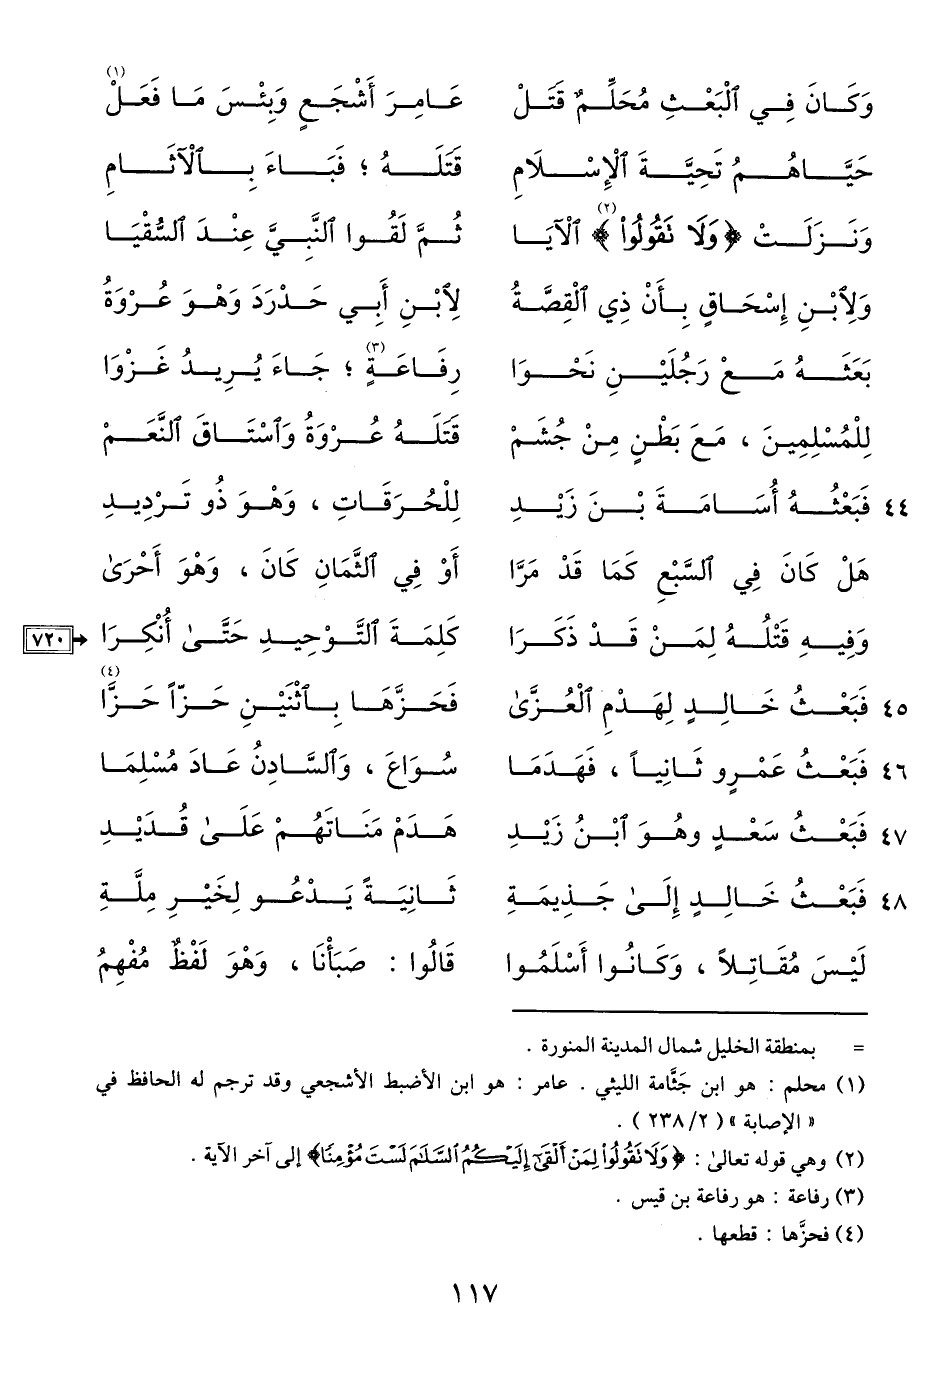 وَكَانَ فِي ٱلْبَعْثِ مُحَلِّمٌ قَتَلْ عَامِرَ أَشْجَعٍ وَبِئْسَ مَا فَعَلْ (١)
حَيَّاهُمُ تَحِيَّةَ ٱلْإِسْلَامِ قَتَلَهُ ؛ فَبَاءَ بِٱلْآثَامِ
وَنَزَلَتْ ﴿ وَلَا تَقُولُوا۟ ﴾ (٢) ٱلْآيَا ثُمَّ لَقُوا ٱلنَّبِيَّ عِنْدَ ٱلسُّقْيَا
وَلِٱبْنِ إِسْحَاقٍ بِأَنْ ذِي ٱلْقِصَّةُ لِٱبْنِ أَبِي حَدْرَدَ وَهْوَ عُرْوَةُ
بَعَثَهُ مَعْ رَجُلَيْنِ نَحْوَا رِفَاعَةٍ (٣) ؛ جَاءَ يُرِيدُ غَزْوَا
لِلْمُسْلِمِينَ ، مَعَ بَطْنٍ مِنْ جُشَمْ قَتَلَهُ عُرْوَةُ وَٱسْتَاقَ ٱلنَّعَمْ
٤٤ فَبَعْثُهُ أُسَامَةَ بْنَ زَيْدِ لِلْحُرَقَاتِ ، وَهْوَ ذُو تَرْدِيدِ
هَلْ كَانَ فِي ٱلسَّبْعِ كَمَا قَدْ مَرَّا أَوْ فِي ٱلثَّمَانِ كَانَ ، وَهْوَ أَحْرَىٰ
وَفِيهِ قَتْلُهُ لِمَنْ قَدْ ذَكَرَا كَلِمَةَ ٱلتَّوْحِيدِ حَتَّىٰ أُنْكِرَا ٧٢٠
٤٥ فَبَعْثُ خَالِدٍ لِهَدْمِ ٱلْعُزَّىٰ فَحَزَّهَا بِٱثْنَيْنِ حَزّاً حَزَّا (٤)
٤٦ فَبَعْثُ عَمْرٍو ثَانِياً ، فَهَدَمَا سُوَاعَ ، وَٱلسَّادِنُ عَادَ مُسْلِمَا
٤٧ فَبَعْثُ سَعْدٍ وهُوَ ٱبْنُ زَيْدِ هَدَمْ مَنَاتَهُمْ عَلَىٰ قُدَيْدِ
٤٨ فَبَعْثُ خَالِدٍ إِلَىٰ جَذِيمَةِ ثَانِيَةً يَدْعُو لِخَيْرِ مِلَّةِ
لَيْسَ مُقَاتِلاً ، وَكَانُوا أَسْلَمُوا قَالُوا : صَبَأْنَا ، وَهْوَ لَفْظٌ مُفْهِمُ
= بمنطقة الخليل شمال المدينة المنورة .
(١) محلم : هو ابن جَثَّامة الليثي . عامر : هو ابن الأضبط الأشجعي وقد ترجم له الحافظ في
« الإصابة » ( ٢٣٨/٢ ) .
(٢) وهي قوله تعالىٰ : ﴿ وَلَا تَقُولُوا۟ لِمَنْ أَلْقَىٰٓ إِلَيْكُمُ ٱلسَّلَٰمَ لَسْتَ مُؤْمِنًا ﴾ إلى آخر الآية .
(٣) رفاعة : هو رفاعة بن قيس .
(٤) فحزَّها : قطعها .
١١٧